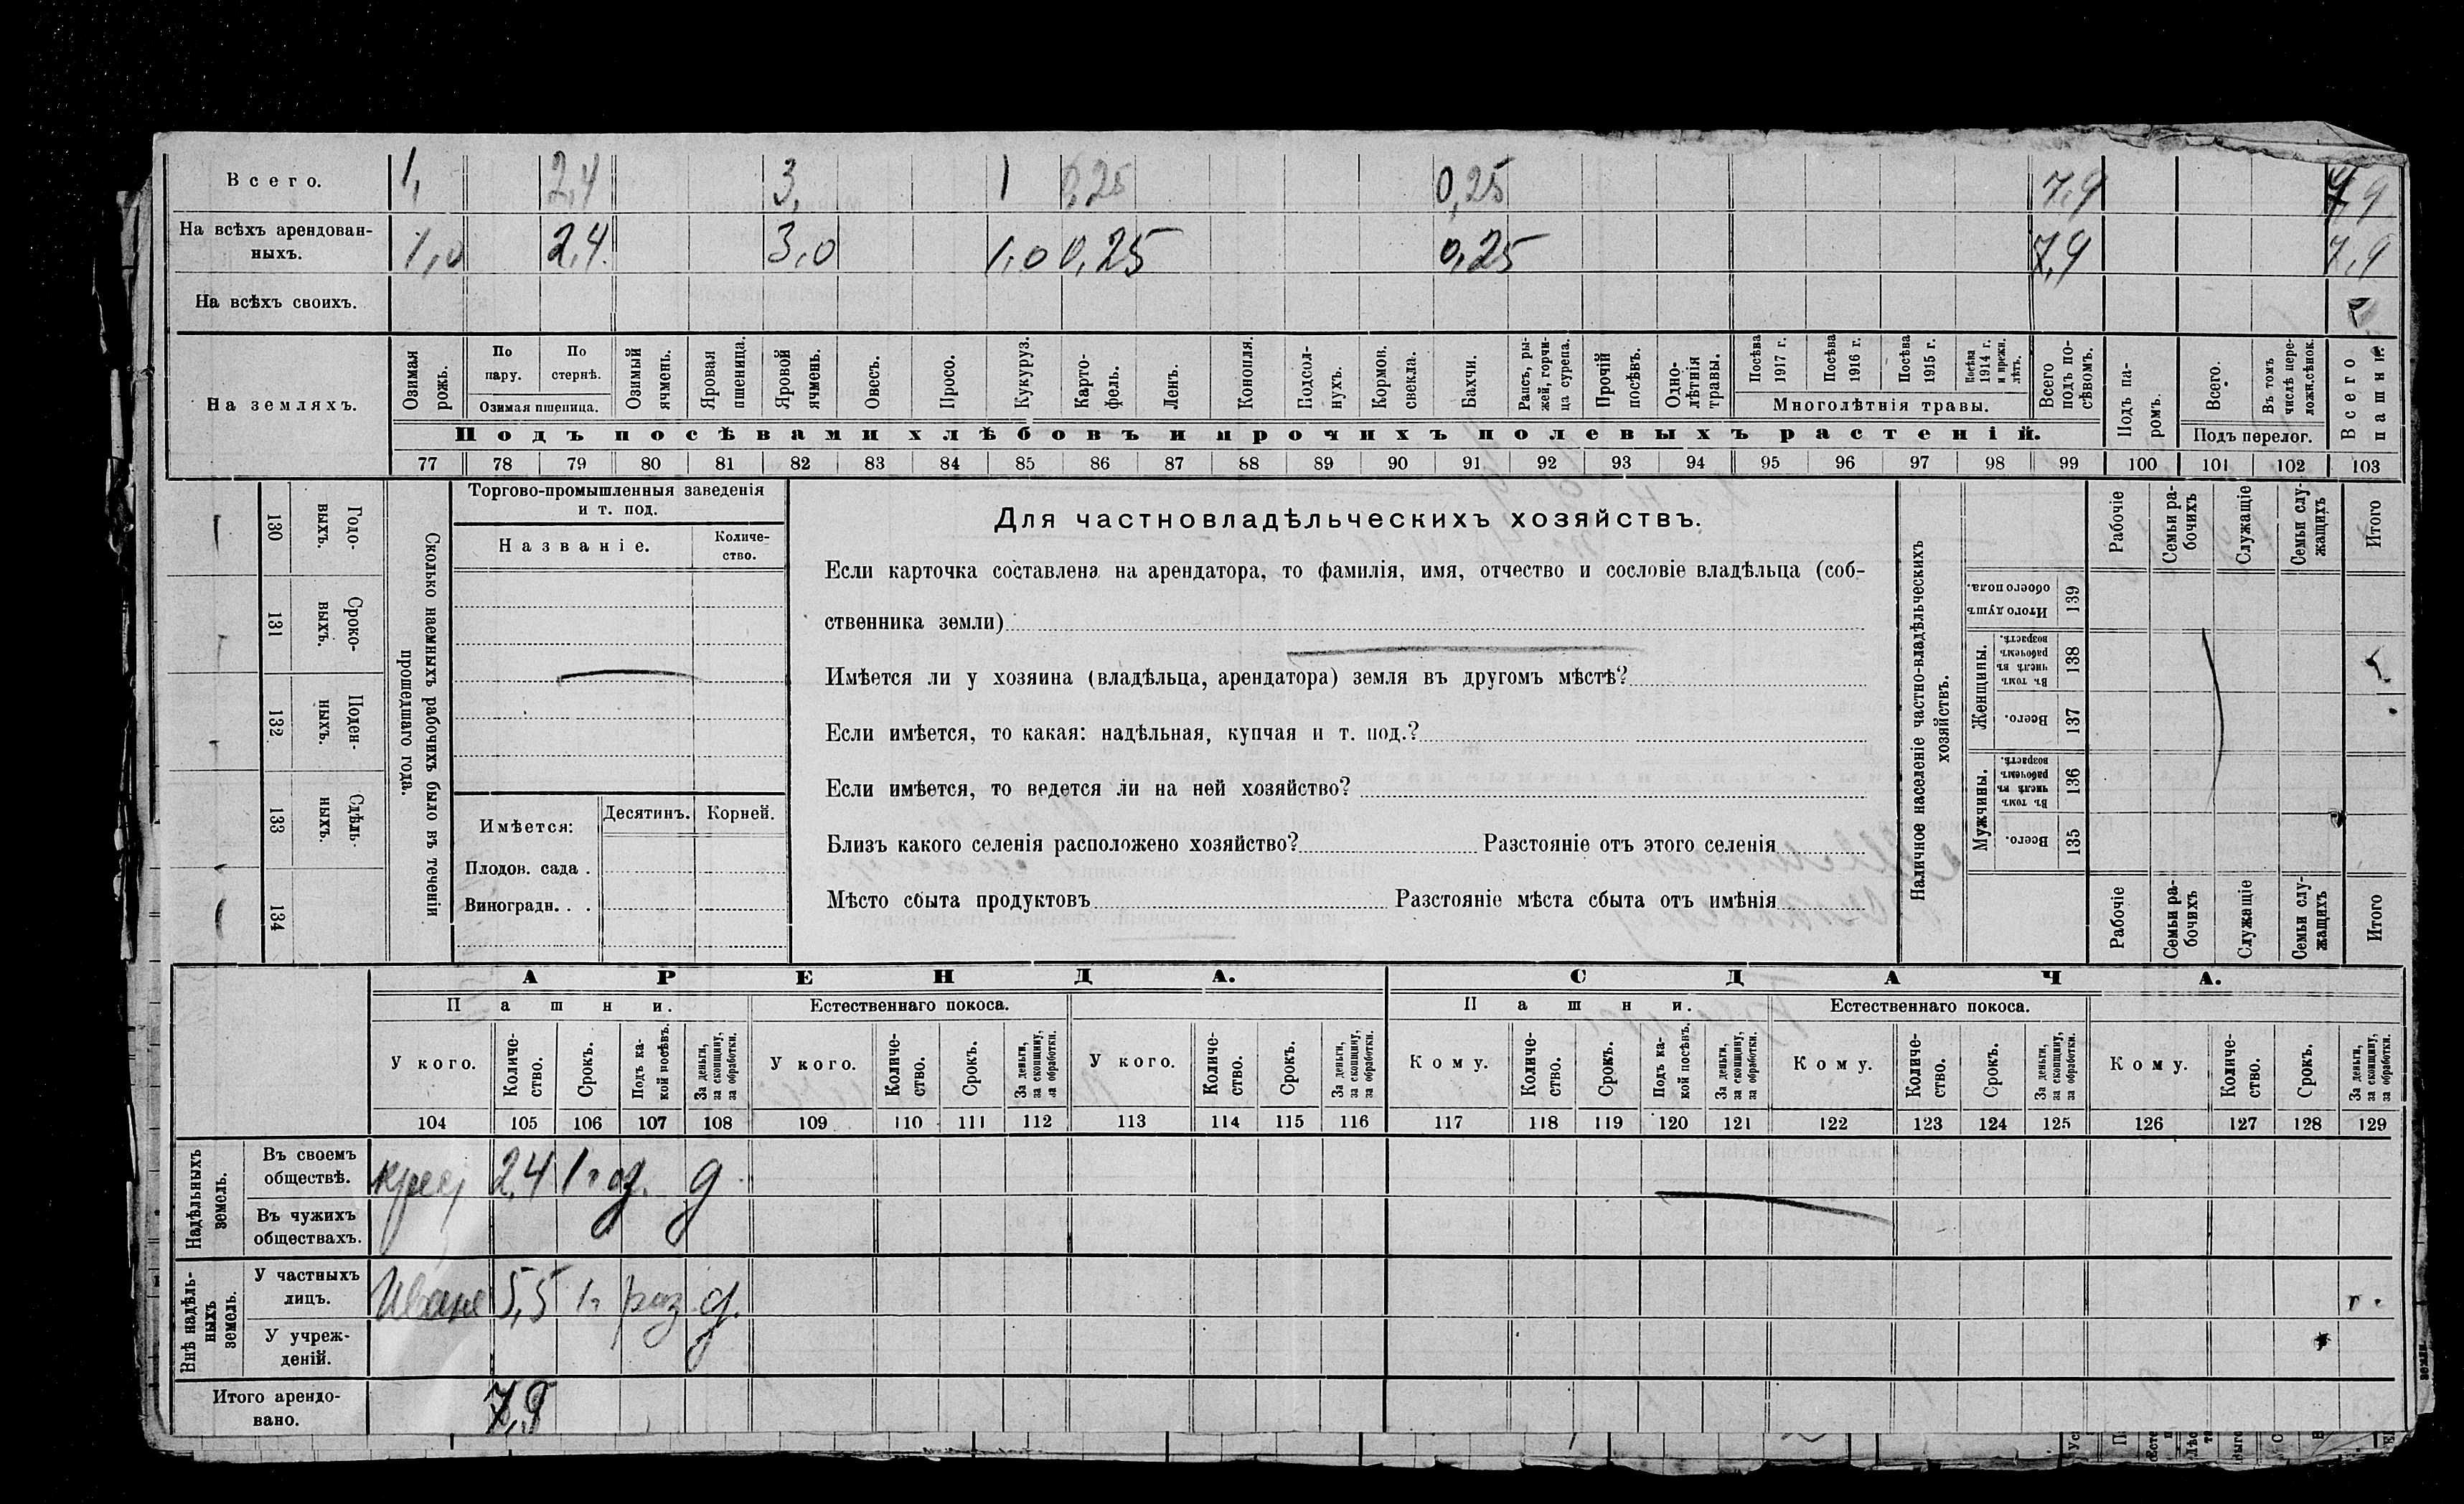 Всего. 1, 2,4 3, 1 0,25 0,25 7,9 7,9
На всѣхъ арендован-
ныхъ. 1,0 2,4 3,0 1,0 0,25 0,25 7,9 7,9
На всѣхъ своихъ.
На земляхъ.
Озимая рожь.
По пару.
По стернѣ.
Озимая пшеница.
Озимый ячмень.
Яровая пшеница.
Яровой ячмень.
Овесъ.
Просо.
Кукуруз.
Карто-
фель.
Ленъ.
Конопля.
Подсол-
нухъ.
Кормов.
свекла.
Бахчи.
Рапсъ, ры-
жей, горчи-
ца сурепа.
Прочій
посѣвъ.
Одно-
лѣтнія
травы.
Посѣва
1917 г.
Посѣва
1916 г.
Посѣва
1915 г.
Посѣва
1914 г.
и прежн.
лѣтъ.
Многолѣтнія травы.
Всего
подъ по-
сѣвомъ.
Подъ па-
ромъ.
Всего.
Въ томъ
числѣ пере-
ложн.сѣнок.
Подъ перелог.
Всего
пашни.
Подъ посѣвами хлѣбовъ и прочихъ полевыхъ растеній.
77 78 79 80 81 82 83 84 85 86 87 88 89 90 91 92 93 94 95 96 97 98 99 100 101 102 103
130 131 132 133 134
Годо-
выхъ.
Сроко-
выхъ.
Поден-
ныхъ.
Сдѣль-
ныхъ.
Сколько наемныхъ рабочихъ было въ теченіи
прошедшаго года.
Торгово-промышленныя заведенія
и т. под.
Названіе.
Количе-
ство.
Имѣется:
Десятинъ.
Корней.
Плодов. сада .
Виноградн. . .
Для частновладѣльческихъ хозяйствъ.
Если карточка составлена на арендатора, то фамилія, имя, отчество и сословіе владѣльца (соб-
ственника земли)
Имѣется ли у хозяина (владѣльца, арендатора) земля въ другомъ мѣстѣ?
Если имѣется, то какая: надѣльная, купчая и т. под.?
Если имѣется, то ведется ли на ней хозяйство?
Близъ какого селенія расположено хозяйство? Разстояніе отъ этого селенія
Мѣсто сбыта продуктовъ Разстояніе мѣста сбыта отъ имѣнія
Наличное населеніе частно-владѣльческихъ
хозяйствъ.
Рабочіе
Семьи ра-
бочихъ
Служащіе
Семьи слу-
жащихъ
Итого
Итого душъ
обоего пола.
139
Женщины.
Въ томъ
числѣ въ
рабочемъ
возрастѣ.
138
Всего.
137
Мужчины.
Въ томъ
числѣ въ
рабочемъ
возрастѣ.
136
Всего.
135
Рабочіе
Семьи ра-
бочихъ
Служащіе
Семьи слу-
жащихъ
Итого
АРЕНДА. СДАЧА.
Пашни. Естественнаго покоса. Пашни. Естественнаго покоса.
У кого.
Количе-
ство.
Срокъ.
Подъ ка-
кой посѣвъ.
За деньги,
за скопщину,
за обработки.
У кого.
Количе-
ство.
Срокъ.
За деньги,
за скопщину,
за обработки.
У кого.
Количе-
ство.
Срокъ.
За деньги,
за скопщину,
за обработки.
Кому.
Количе-
ство.
Срокъ.
Подъ ка-
кой посѣвъ.
За деньги,
за скопщину,
за обработки.
Кому.
Количе-
ство.
Срокъ.
За деньги,
за скопщину,
за обработки.
Кому.
Количе-
ство.
Срокъ.
За деньги,
за скопщину,
за обработки.
104 105 106 107 108 109 110 111 112 113 114 115 116 117 118 119 120 121 122 123 124 125 126 127 128 129
Надѣльныхъ
земель.
Въ своемъ
обществѣ. 2,4 1 год. д
Въ чужихъ
обществахъ.
Внѣ надѣль-
ныхъ
земель.
У частныхъ
лицъ. 5,5 1 г. раз д.
У учреж-
деній.
Итого арендо-
вано. 7,9